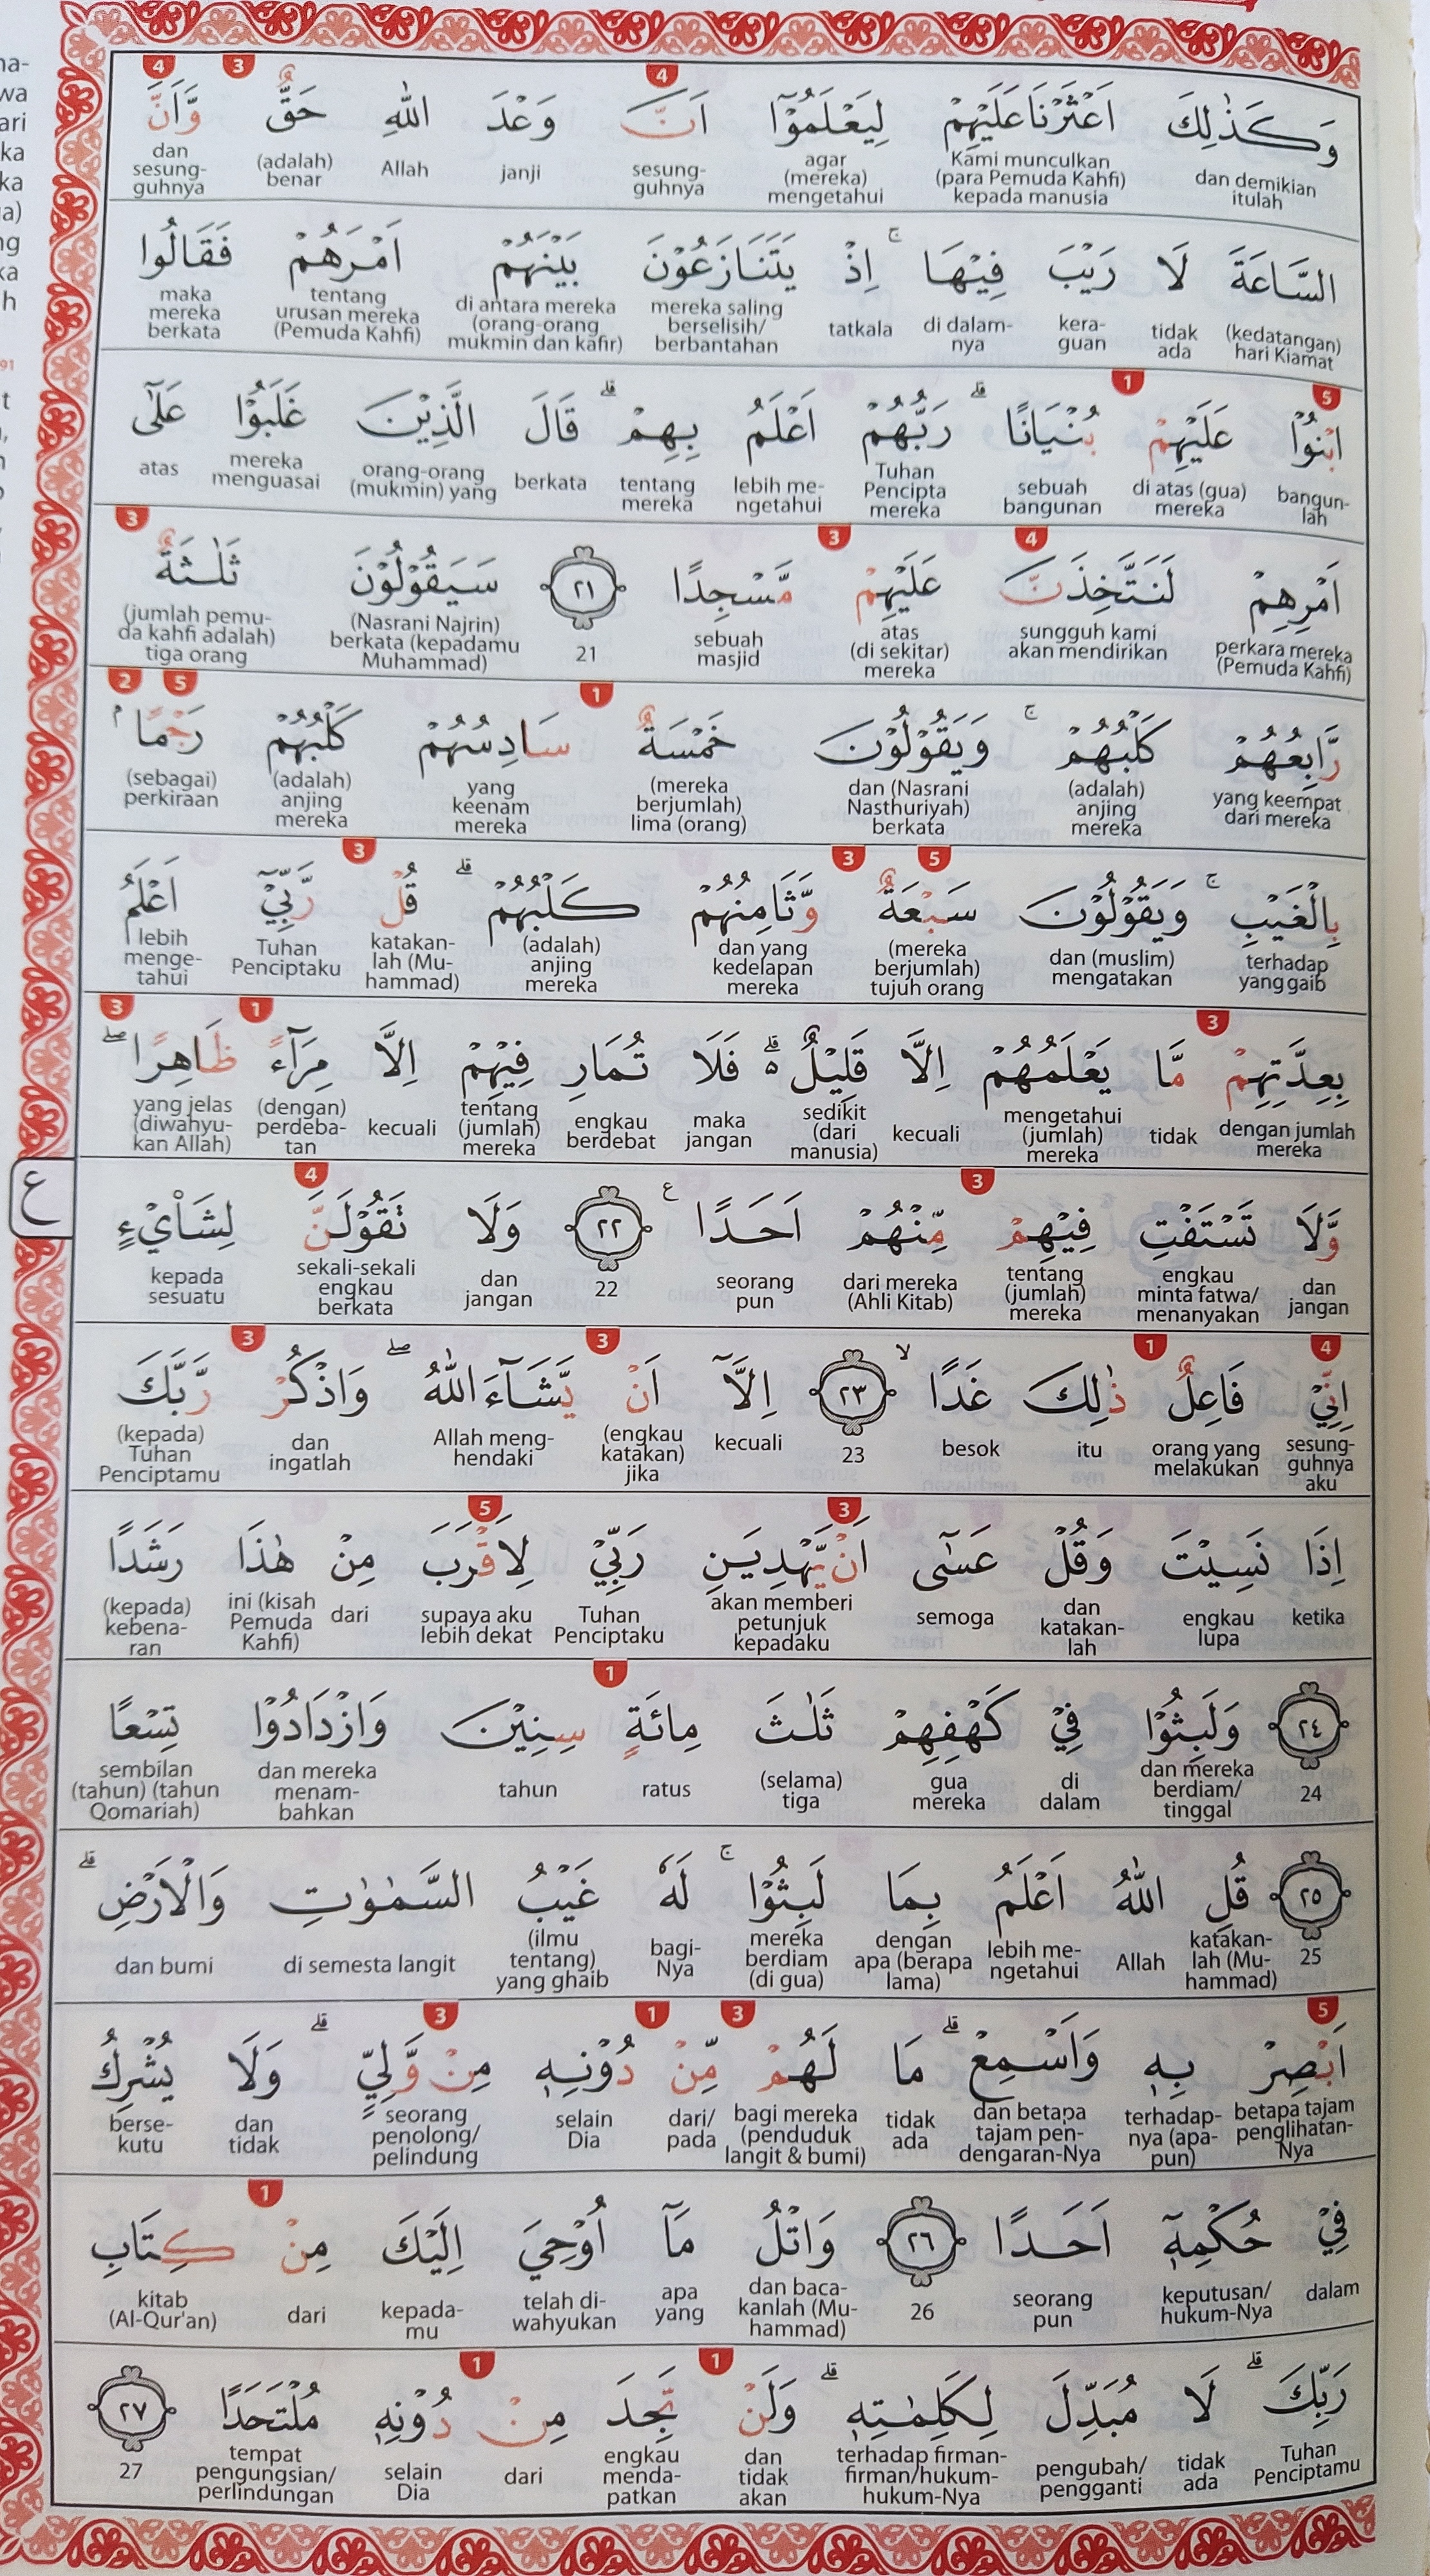 وَكَذٰلِكَ اَعْثَرْنَا عَلَيْهِمْ لِيَعْلَمُوْٓا اَنَّ وَعْدَ اللّٰهِ حَقٌّ وَّاَنَّ
dan demikian itulah
Kami munculkan (para Pemuda Kahfi) kepada manusia
agar (mereka) mengetahui
sesung-guhnya
janji
Allah
(adalah) benar
dan sesung-guhnya
السَّاعَةَ لَا رَيْبَ فِيْهَا ۚ اِذْ يَتَنَازَعُوْنَ بَيْنَهُمْ اَمْرَهُمْ فَقَالُوا
(kedatangan) hari Kiamat
tidak ada
kera-guan
di dalam-nya
tatkala
mereka saling berselisih/ berbantahan
di antara mereka (orang-orang mukmin dan kafir)
tentang urusan mereka (Pemuda Kahfi)
maka mereka berkata
ابْنُوْا عَلَيْهِمْ بُنْيَانًا ۗ رَبُّهُمْ اَعْلَمُ بِهِمْ ۗ قَالَ الَّذِيْنَ غَلَبُوْا عَلٰٓى
bangun-lah
di atas (gua) mereka
sebuah bangunan
Tuhan Pencipta mereka
lebih me-ngetahui
tentang mereka
berkata
orang-orang (mukmin) yang
mereka menguasai
atas
اَمْرِهِمْ لَنَتَّخِذَنَّ عَلَيْهِمْ مَّسْجِدًا ٢١ سَيَقُوْلُوْنَ ثَلٰثَةٌ
perkara mereka (Pemuda Kahfi)
sungguh kami akan mendirikan
atas (di sekitar) mereka
sebuah masjid
21
(Nasrani Najrin) berkata (kepadamu Muhammad)
(jumlah pemu-da kahfi adalah) tiga orang
رَّابِعُهُمْ كَلْبُهُمْ ۚ وَيَقُوْلُوْنَ خَمْسَةٌ سَادِسُهُمْ كَلْبُهُمْ رَجْمًا ۢ
yang keempat dari mereka
(adalah) anjing mereka
dan (Nasrani Nasthuriyah) berkata
(mereka berjumlah) lima (orang)
yang keenam mereka
(adalah) anjing mereka
(sebagai) perkiraan
بِالْغَيْبِ ۚ وَيَقُوْلُوْنَ سَبْعَةٌ وَّثَامِنُهُمْ كَلْبُهُمْ ۗ قُلْ رَّبِّيْٓ اَعْلَمُ
terhadap yang gaib
dan (muslim) mengatakan
(mereka berjumlah) tujuh orang
dan yang kedelapan mereka
(adalah) anjing mereka
katakan-lah (Mu-hammad)
Tuhan Penciptaku
lebih menge-tahui
بِعِدَّتِهِمْ مَّا يَعْلَمُهُمْ اِلَّا قَلِيْلٌ ەۗ فَلَا تُمَارِ فِيْهِمْ اِلَّا مِرَاۤءً ظَاهِرًا ۖ
dengan jumlah mereka
tidak
mengetahui (jumlah) mereka
kecuali
sedikit (dari manusia)
maka jangan
engkau berdebat
tentang (jumlah) mereka
kecuali
(dengan) perdeba-tan
yang jelas (diwahyu-kan Allah)
ع
وَّلَا تَسْتَفْتِ فِيْهِمْ مِّنْهُمْ اَحَدًا ࣖ ٢٢ وَلَا تَقُوْلَنَّ لِشَا۟يْءٍ
dan jangan
engkau minta fatwa/ menanyakan
tentang (jumlah) mereka
dari mereka (Ahli Kitab)
seorang pun
22
dan jangan
sekali-sekali engkau berkata
kepada sesuatu
اِنِّيْ فَاعِلٌ ذٰلِكَ غَدًا ۙ ٢٣ اِلَّآ اَنْ يَّشَاۤءَ اللّٰهُ ۖ وَاذْكُرْ رَّبَّكَ
sesung-guhnya aku
orang yang melakukan
itu
besok
23
kecuali
(engkau katakan) jika
Allah meng-hendaki
dan ingatlah
(kepada) Tuhan Penciptamu
اِذَا نَسِيْتَ وَقُلْ عَسٰٓى اَنْ يَّهْدِيَنِ رَبِّيْ لِاَقْرَبَ مِنْ هٰذَا رَشَدًا
ketika
engkau lupa
dan katakan-lah
semoga
akan memberi petunjuk kepadaku
Tuhan Penciptaku
supaya aku lebih dekat
dari
ini (kisah Pemuda Kahfi)
(kepada) kebena-ran
٢٤ وَلَبِثُوْا فِيْ كَهْفِهِمْ ثَلٰثَ مِائَةٍ سِنِيْنَ وَازْدَادُوْا تِسْعًا
24
dan mereka berdiam/ tinggal
di dalam
gua mereka
(selama) tiga
ratus
tahun
dan mereka menam-bahkan
sembilan (tahun) (tahun Qomariah)
٢٥ قُلِ اللّٰهُ اَعْلَمُ بِمَا لَبِثُوْا ۚ لَهٗ غَيْبُ السَّمٰوٰتِ وَالْاَرْضِ ۗ
25
katakan-lah (Mu-hammad)
Allah
lebih me-ngetahui
dengan apa (berapa lama)
mereka berdiam (di gua)
bagi-Nya
(ilmu tentang) yang ghaib
di semesta langit
dan bumi
اَبْصِرْ بِهٖ وَاَسْمِعْ ۗ مَا لَهُمْ مِّنْ دُوْنِهٖ مِنْ وَّلِيٍّ ۗ وَلَا يُشْرِكُ
betapa tajam penglihatan-Nya
terhadap-nya (apa-pun)
dan betapa tajam pen-dengaran-Nya
tidak ada
bagi mereka (penduduk langit & bumi)
dari/ pada
selain Dia
seorang penolong/ pelindung
dan tidak
berse-kutu
فِيْ حُكْمِهٖٓ اَحَدًا ٢٦ وَاتْلُ مَآ اُوْحِيَ اِلَيْكَ مِنْ كِتَابِ
dalam
keputusan/ hukum-Nya
seorang pun
26
dan baca-kanlah (Mu-hammad)
apa yang
telah di-wahyukan
kepada-mu
dari
kitab (Al-Qur'an)
رَبِّكَ ۗ لَا مُبَدِّلَ لِكَلِمٰتِهٖ ۗ وَلَنْ تَجِدَ مِنْ دُوْنِهٖ مُلْتَحَدًا ٢٧
Tuhan Penciptamu
tidak ada
pengubah/ pengganti
terhadap firman-firman/hukum-hukum-Nya
dan tidak akan
engkau menda-patkan
dari
selain Dia
tempat pengungsian/ perlindungan
27